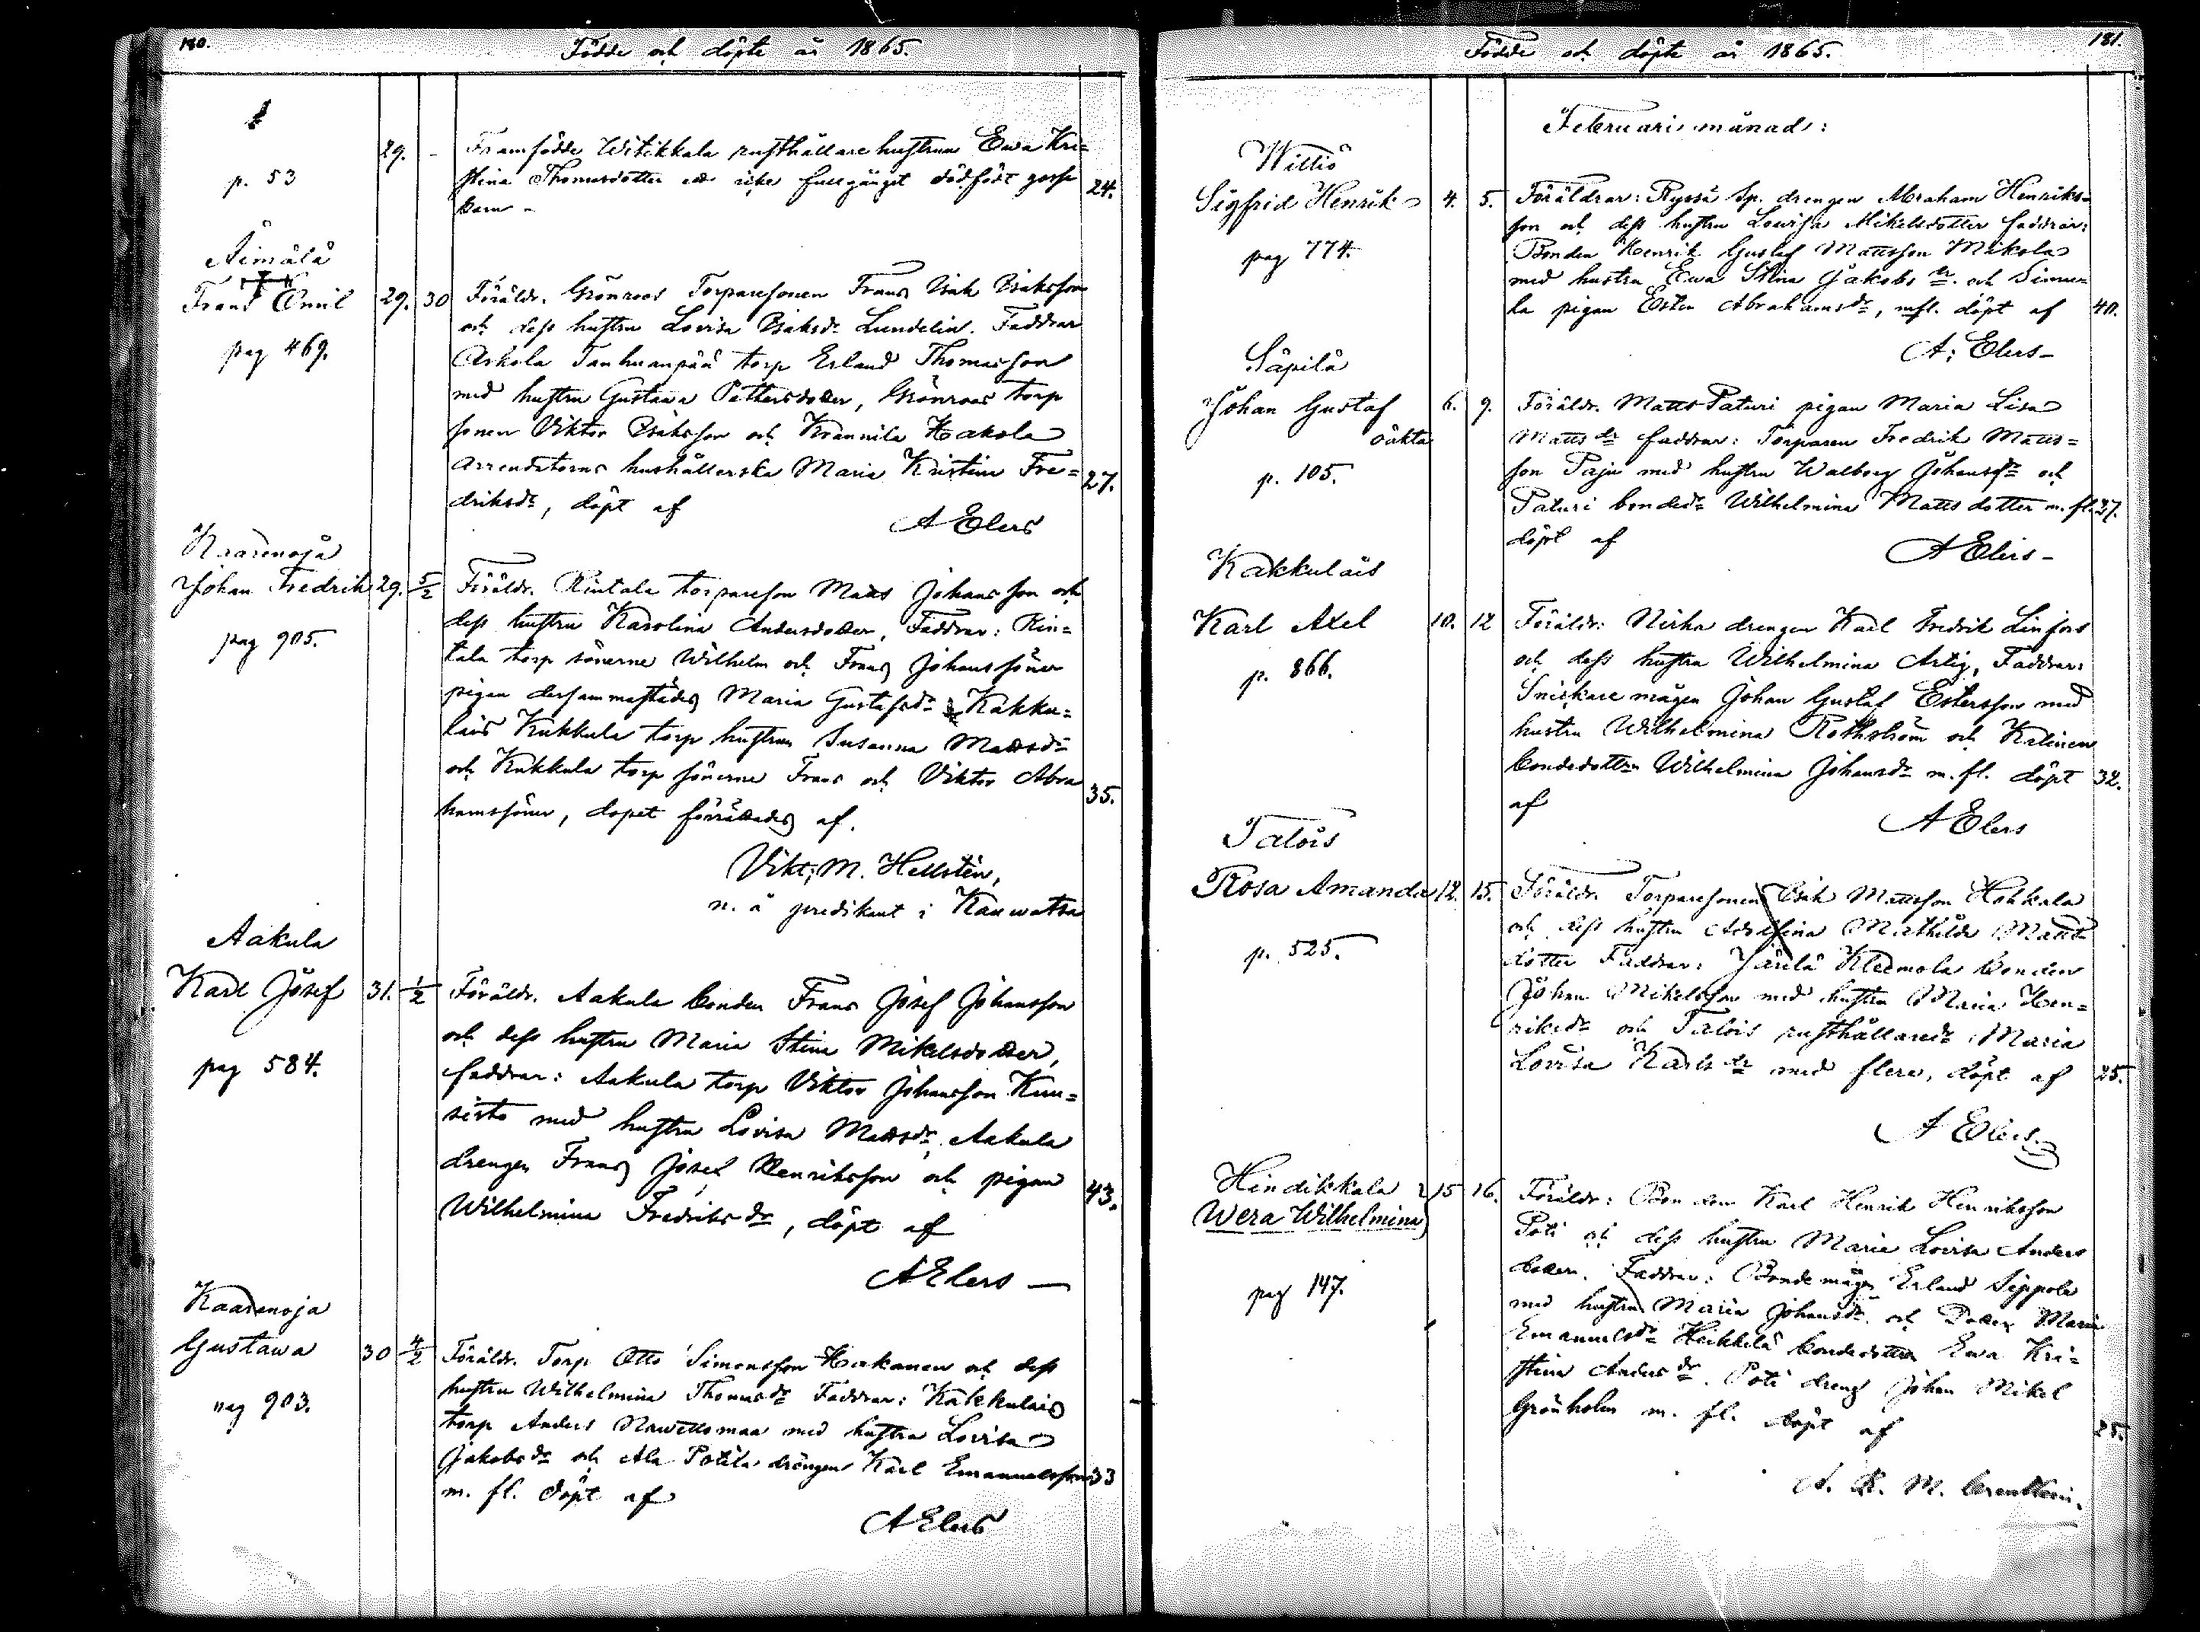 180.
Födde och döpte år 1865.
p. 53
29.
Framfödde Witikkala rusthållare hustrun Ewa Kri=
stina Thomasdotter ett icke fullgånget dödfödt gosse
barn -
24.
Äimälä
Frans Emil
pag 469.
29. 30
Föräldr. Grönroos Torparesonen Frans Isak Isaksson
och dess hustru Lovisa Isaksdr Lundelin. Faddrar
Askola Tanhuanpää torp Erland Thomasson
med hustru Gustava Pettersdotter, Grönroos torp
sonen Viktor Isaksson och Krannila Hakola
arrendatorns hushållerska Maria Kristina Fre=
driksdr, döpt af
27.
A Elers
Kraanoja
Johan Fredrik
pag 905.
29. 5/2
Föräldr. Rintala torpareson Matts Johansson och
dess hustru Karolina Andersdotter, Faddrar: Rin=
tala torp sönerne Wilhelm och Frans Johanssöner
pigan dersammastädes Maria Gustafsdr Kakku=
lais Kukkula torp hustrun Susanna Mattsdr
och Kukkula torp sönerne Frans och Viktor Abra
hamssöner, dopet förrättades af.
35.
Vikt. M. Hellstén,
n. å predikant i Kauwatsa
Aakula
Karl Josef
pag 584.
31. 1/2
Föräldr. Aakula bonden Frans Josef Johansson
och dess hustru Maria Stina Mikelsdotter,
faddrar: Aakula torp Viktor Johansson Kuu=
sisto med hustru Lovisa Mattsdr, Aakula
drengen Frans Josef Henriksson och pigan
Wilhelmina Fredriksdr, döpt af
43.
A Elers —
Kaarenoja
Gustava
pag 903.
30 4/2
Föräldr. Torp Otto Simonsson Hakanen och dess
hustru Wilhelmina Thomasdr Faddrar: Kakkulais
torp Anders med hustru Lovisa
Jakobsdr och Ala Potila drängen Karl Emanuelsson
m. fl. döpt af
33
A Elers
181.
Födde och döpte år 1865.
Februari månad:
Willio
Sigfrid Henrik
pag 774.
4. 5.
Föräldrar: Ryssä Sp. drengen Abraham Henriks=
son och dess hustru Lovisa Mikelsdotter faddrar:
Bonden Henrik Gustaf Mattsson Mikola
med hustru Ewa Stina Jakobsdr. och Simu=
la pigan Ester Abrahamsdr, mfl. döpt af
40.
A: Elers —
Säpilä
Johan Gustaf
oäkta
p. 105.
6. 9.
Föräldr. Matts Paturi pigan Maria Lisa
Mattsdr faddrar: Torparen Fredrik Matts=
son Paju med hustru Walborg Johansdr och
Paturi bondedr Wilhelmina Mattsdotter m. fl.
döpt af
27.
A Elers —
Kakkulais
Karl Axel
p. 866.
10. 12
Föräldr: Nirha drengen Karl Fredrik Linfors
och dess hustru Wilhelmina Artig, Faddrar:
Snickare mågen Johan Gustaf Estersson med
hustru Wilhelmina Rothström och Katinen
bondedottren Wilhelmina Johansdr m. fl. döpt
af
32.
A Elers
Talois
Rosa Amanda
p. 525.
12. 15.
Föräldr. Torparesonen Isak Mattsson Hohkala
och dess hustru Adolfina Mathilda Matts
dotter Faddrar: Järilä Klemola bonden
Johan Mikelsson med hustru Maria Hen=
riksdr och Talois rusthållaredr Maria
Lovisa Karlsdr med flere, döpt af
25.
A Elers.
Hindikkala
Wera Wilhelmina
pag 147.
15 16.
Föräldr: Bonden Karl Henrik Henriksson
Poti och dess hustru Maria Lovisa Anders
dotter. Faddrar: Bonde mågen Erland Seppola
med hustru Maria Johansdr. och Dotter Maria
Emanuelsdr Heikkilä bondedottren Ewa Kri=
stina Andersdr. Poti dreng Johan Mikel
Grönholm m. fl. döpt af
25.
A. R. M.